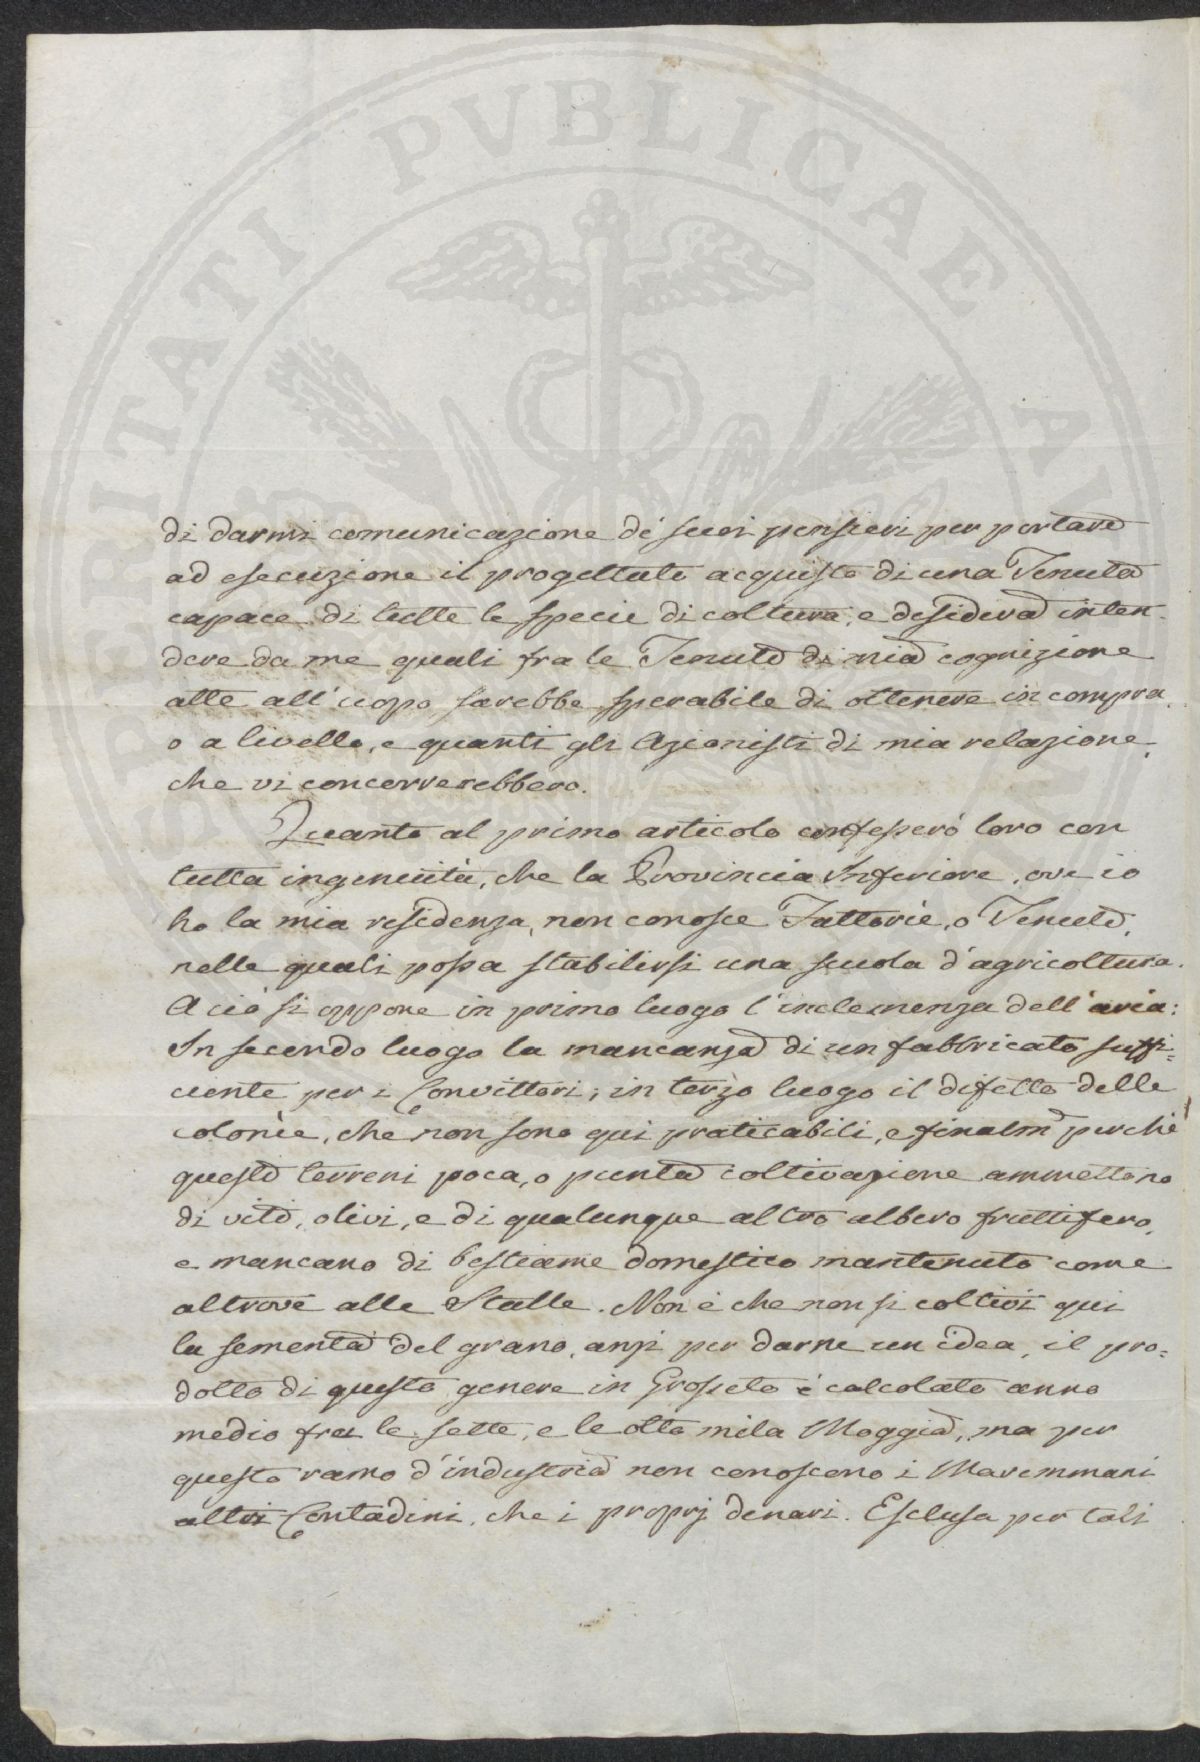 PROSPERITATI PVBLICAE AVGENDAE
di darmi comunicazione de' suoi pensieri per portare
ad esecuzione il progettato acquisto di una Tenuta
capace di tutte le specie di coltura, e desidera inten-
dere da me quali fra le Tenute di mia cognizione
atte all'uopo sarebbe sperabile di ottenere in compra,
o a livello, e quanti gli Azionisti di mia relazione,
che vi concorrerebbero.
Quanto al primo articolo confesserò loro con
tutta ingenuità, che la Provincia Inferiore, ove io
ho la mia residenza, non conosce Fattorie, o Tenute,
nelle quali possa stabilirsi una scuola d'agricoltura.
A ciò si oppone in primo luogo l'inclemenza dell'aria:
In secondo luogo la mancanza di un fabbricato suffi=
ciente per i Convittori; in terzo luogo il difetto delle
colonìe, che non sono qui praticabili, e finalm.e perchè
questi terreni poca, o punta coltivazione ammettono
di vite, olivi, e di qualunque altro albero fruttifero,
e mancano di bestiame domestico mantenuto come
altrove alle Stalle. Non è che non si coltivi qui
la sementa del grano, anzi per darne un idea, il pro=
dotto di questo genere in Grosseto è calcolato anno
medio fra le sette, e le otto mila Moggia, ma per
questo ramo d'industria non conoscono i Maremmani
altri Contadini, che i proprj denari. Esclusa per tali